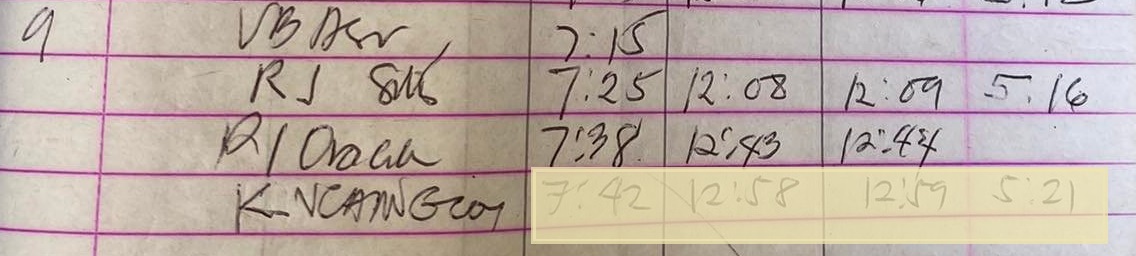 9 VB 7:15
RJ 7:25 12:08 12:09 5:16
RJ 7:38 12:43 12:44
7:42 12:58 12:59 5:21